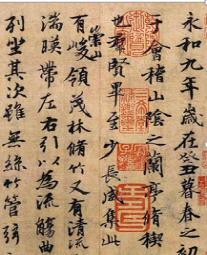 永和九年歲在癸丑暮春之初
于會稽山陰之蘭亭脩稧
也羣賢畢至少長咸集此
崇山
有峻領茂林脩竹又有清流
湍暎帶左右引以為流觴曲
列坐其次雖無絲竹管弦